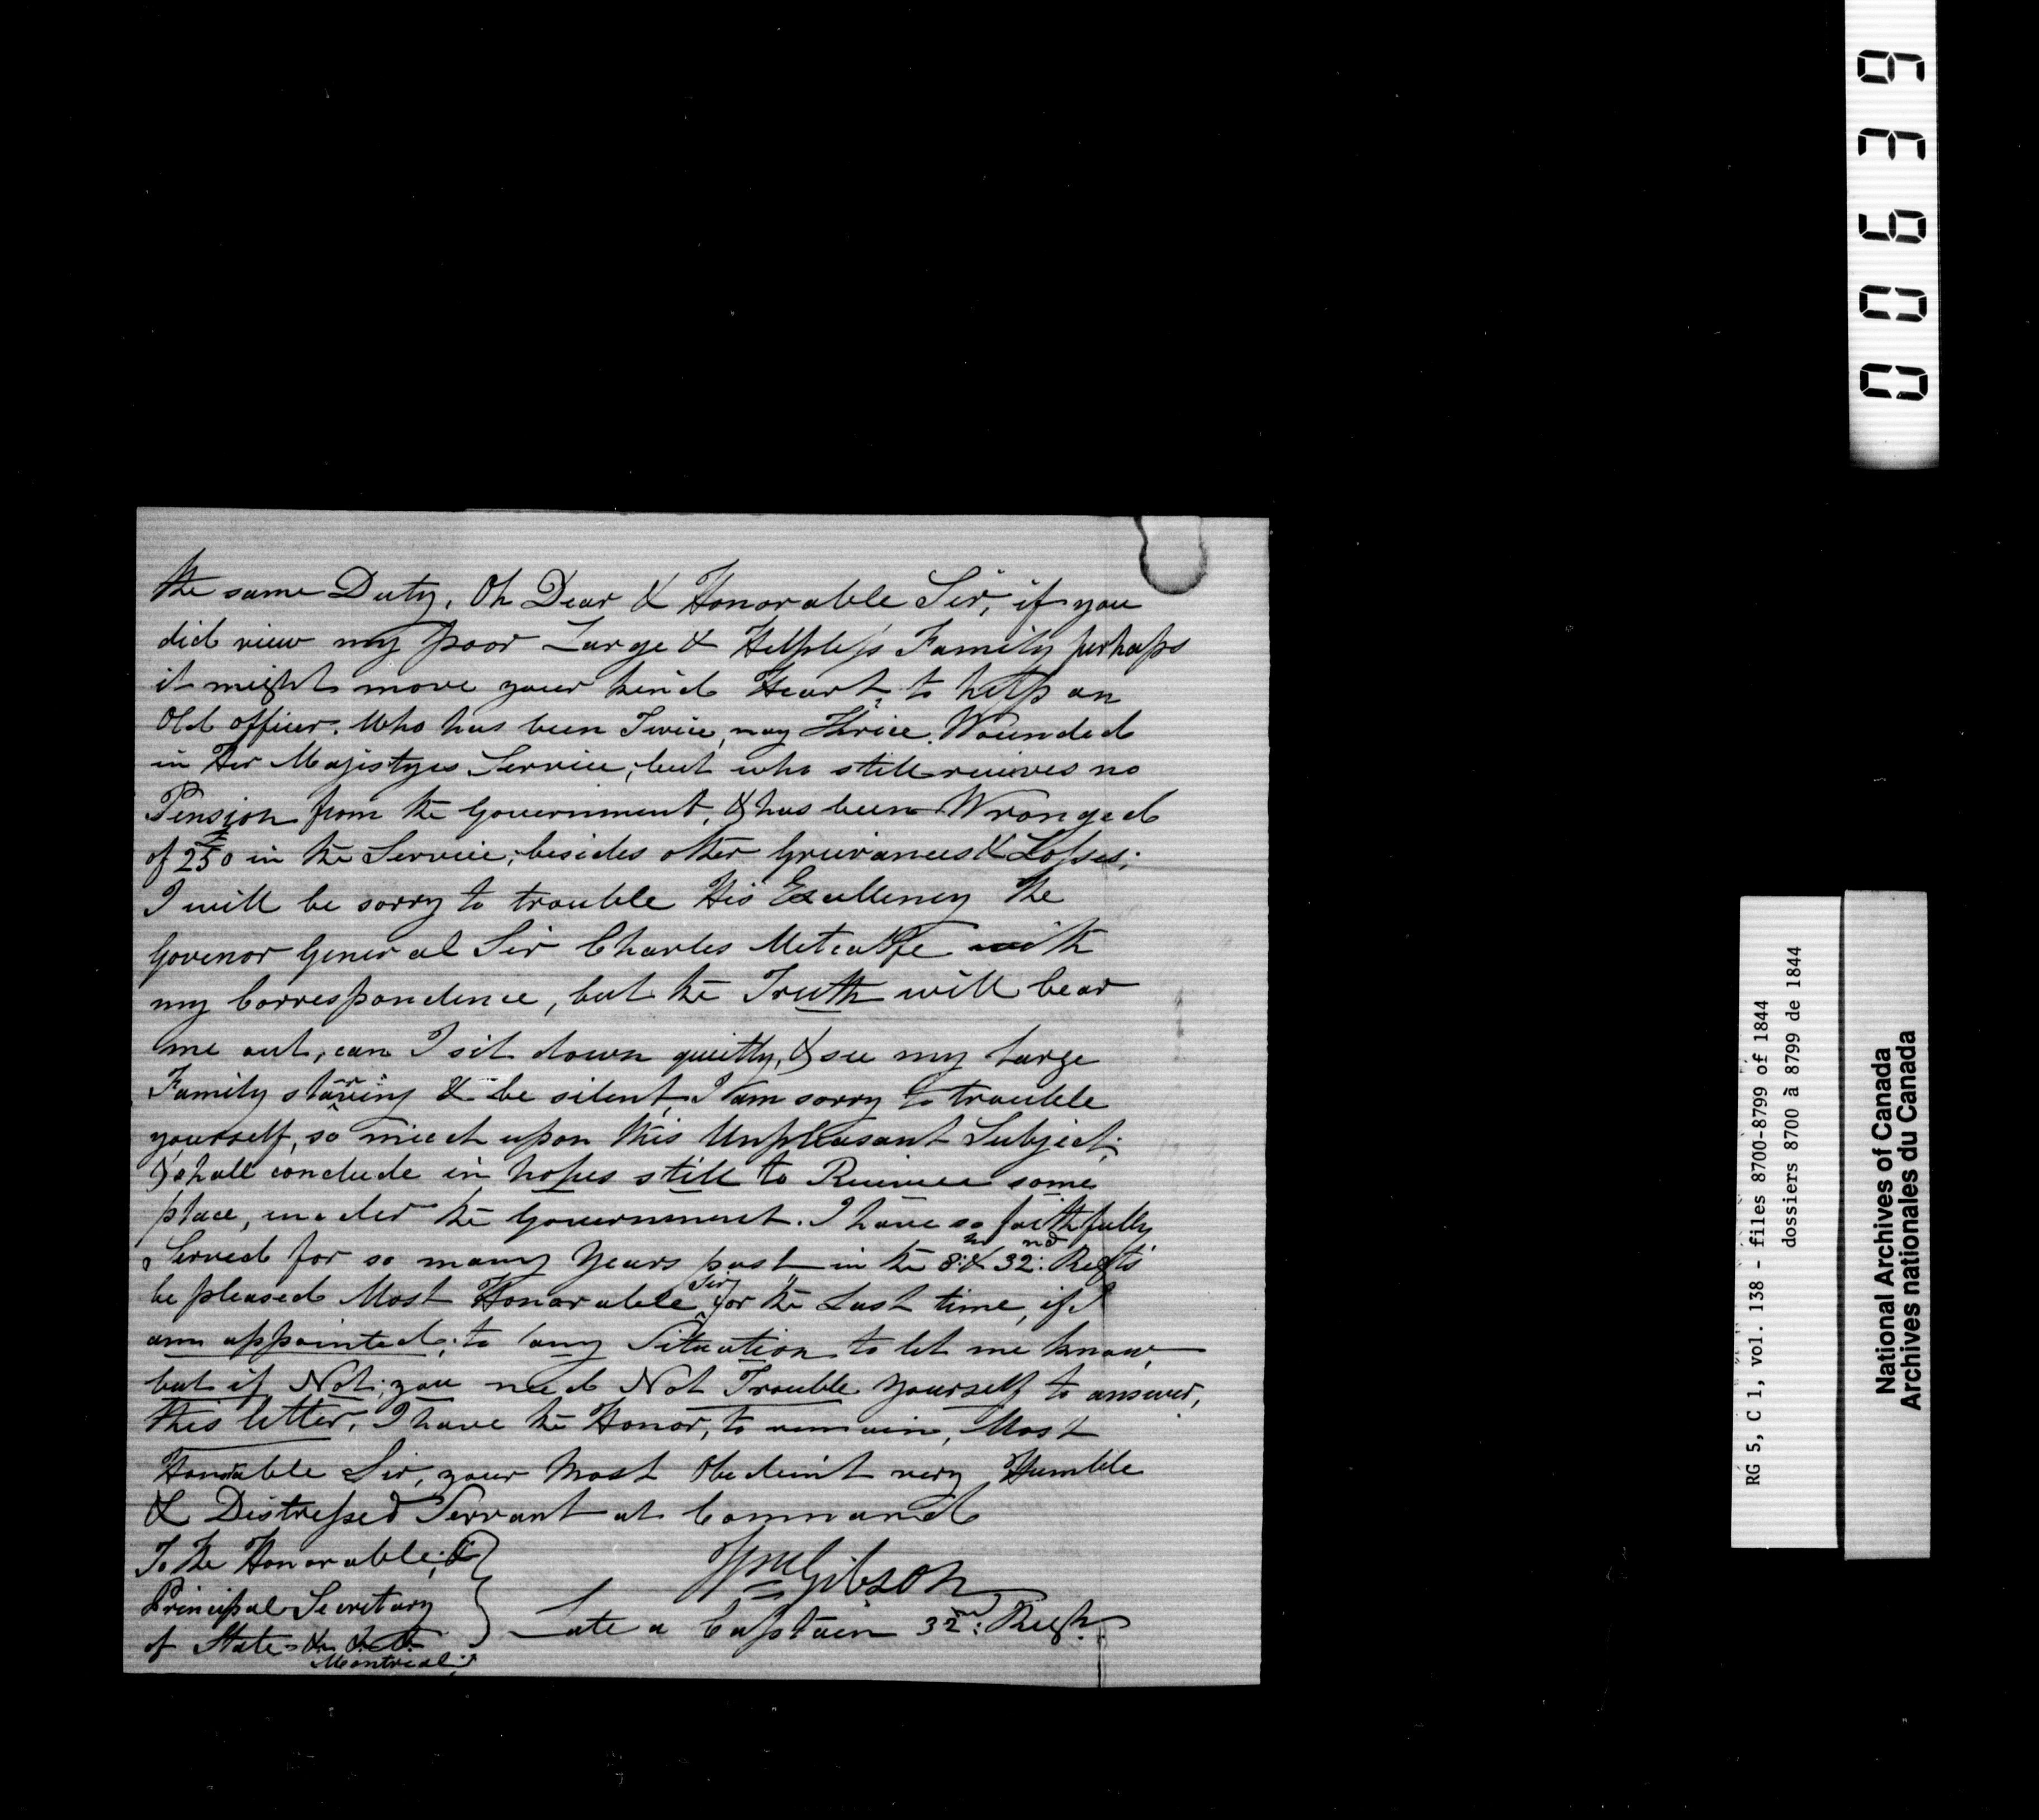 the same Duty, Oh Dear & Honorable Sir, if you
did view my poor Large & Helpless Family perhaps
it might move your kind Heart, to help an
Old officer. Who has been Twice, nay Thrice. Wounded
in Her Majistyes Service, but who still recives no
Pension from the Government, & has been Wronged
of £250 in the Service, besides other Grievances & Losses;
I will be sorry to trouble His Excellency The
Govenor General Sir Charles Metcalfe with
my Correspondence, but the Truth will bear
me out, can I sit down quietly, & see my large
Family starving & be silent, I am sorry to trouble
yourself, so much upon this Unpleasant Subject;
& shall conclude in hopes still to Recieve some
place, under the Government. I have so faithfully
Served for so many Years past in the 8th & 32nd: Regts
be pleased Most Honorable Sir, for the Last time, if I
am appointed, to any Situation to let me know,
but if Not; you need Not Trouble yourself to answer,
this letter, I have the Honor, to remain, Most
Honorable Sir, your Most Obedient very Humble
& Distressed Servant at Command
To the Honorable; &
Principal Secretary
of State &c &c &c
Montreal;
Wm Gibson
Late a Captain 32nd: Regt.
00639
RG 5, C 1, vol. 138 - files 8700-8799 of 1844
dossiers 8700 à 8799 de 1844
National Archives of Canada
Archives nationales du Canada